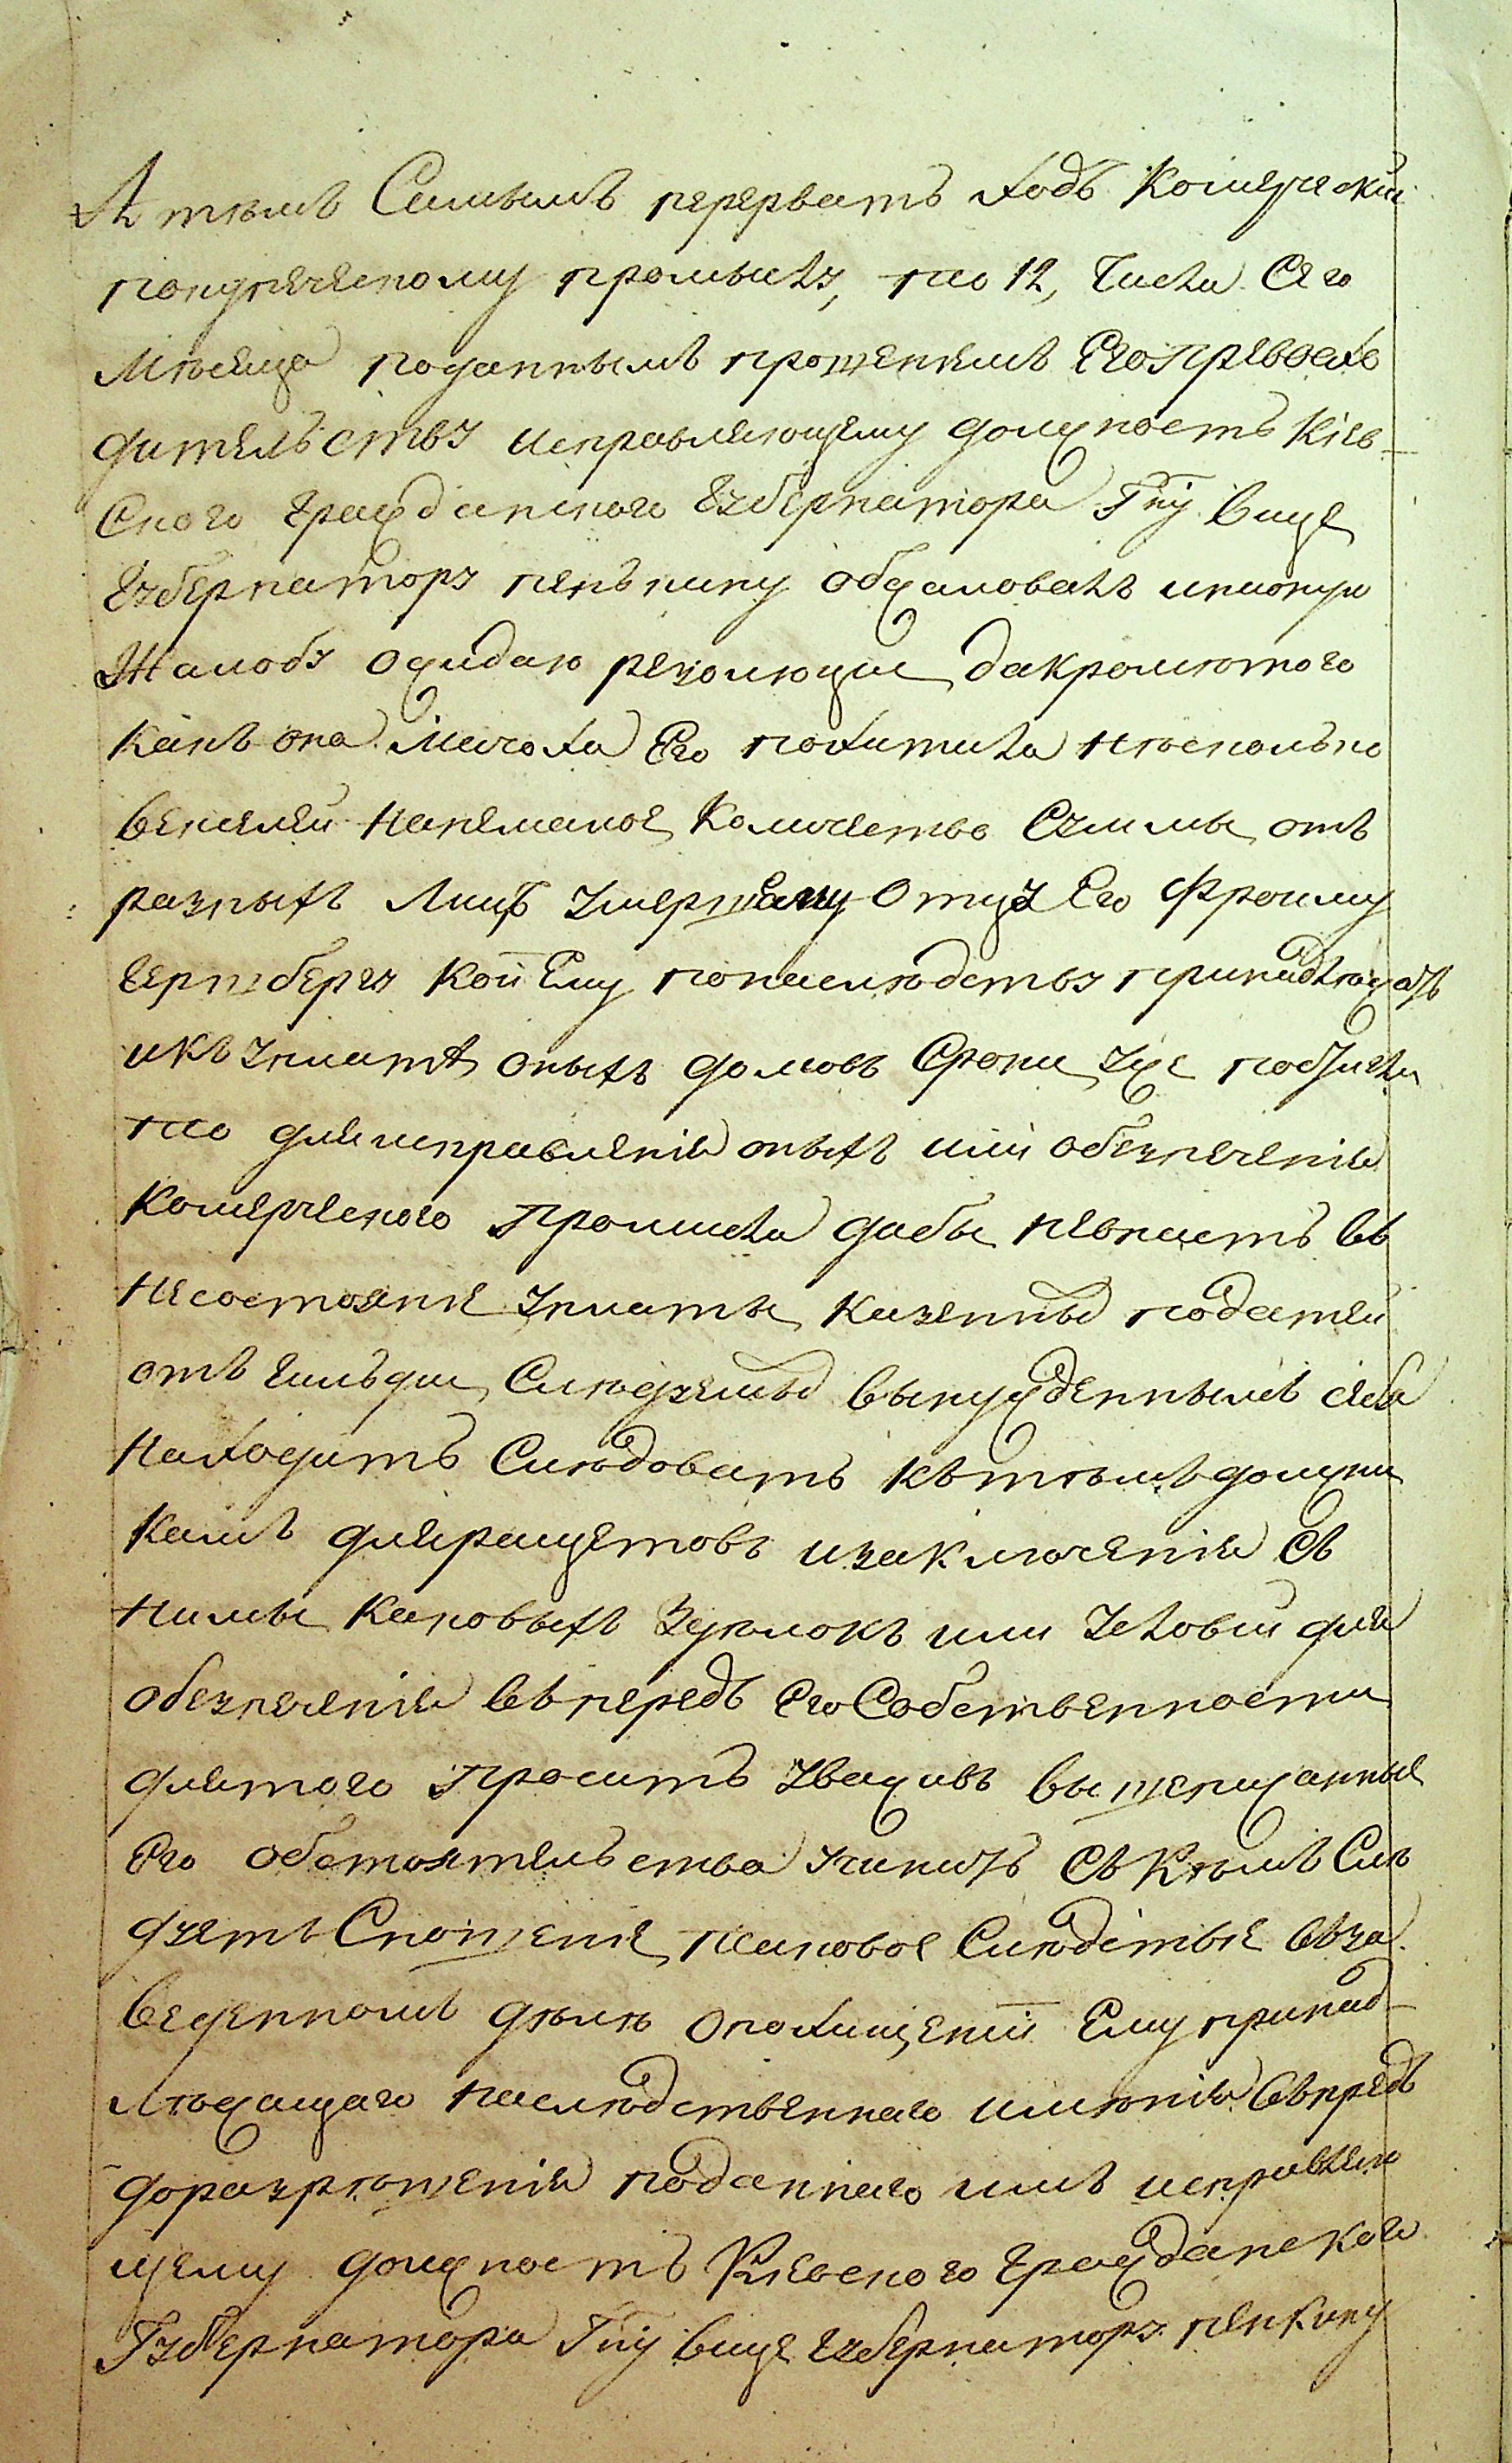 А тѣмъ Самымъ перервать ходъ Комерческій
покупеческому промыслу, то 12, Числа Сего
Мѣсяца поданнымъ прошеніемъ Его превосхо
дительству исправляющему должность Кіев-
ского Гражданского Губернатора Гну Вице
Губернатору пенькину обжаловалъ и на оную
Жалобу ожидаю резолюціи, да кромѣ того
какъ она Мачоха Его похитила нѣсколько
векселей на немалое Количество Суммы отъ
разныхъ Лицъ Умершему Отцу Его Фроиму
Гершбергу кои Ему по наслѣдству принадлежатъ
и къ уплатѣ оныхъ долговъ Сроки уже побѣгли
то для исправленія оныхъ или обезпеченія
Комерческого Промисла дабы не впасть въ
несостояніе уплаты казенныхъ податей
отъ гильдіи Слѣдуемыхъ вынужденнымъ себя
находитъ Слѣдовать къ тѣмъ должни
камъ для ращетовъ и заключенія съ
ними каковыхъ Здѣлокъ или Условій для
обезпеченія въ передъ Его Собственности
для того Проситъ Уваживъ вышеписанные
Его обстоятельства учинить съ Кѣмъ Слѣ
дуетъ Сношеніе, таковое Слѣдствіе въ за
веденномъ дѣлѣ о похищеніи Ему принад-
лѣжащаго наслѣдственнаго имѣнія въ предь
до разрѣшенія поданнаго имъ исправляю
щему должность Кіевского Гражданского
Губернатора Гну Вице Губернатору пенкину